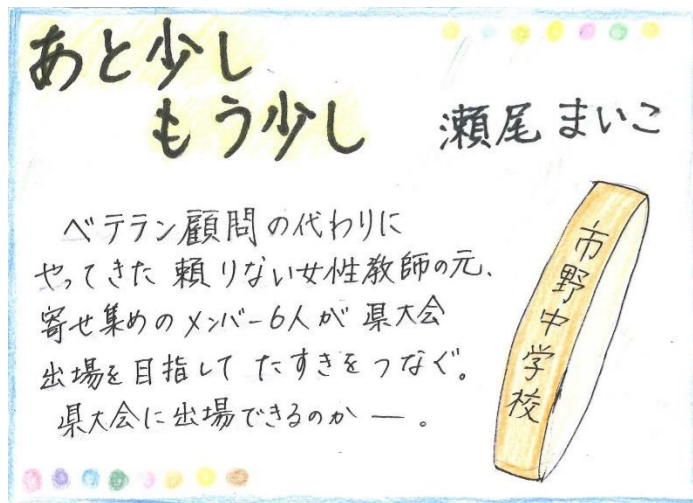 あと少し
もう少し
瀬尾 まいこ
ベテラン顧問の代わりに
やってきた 頼りない女性教師の元、
寄せ集めのメンバー6人が 県大会
出場を目指して たすきをつなぐ。
県大会に出場できるのか ー 。
市野中学校